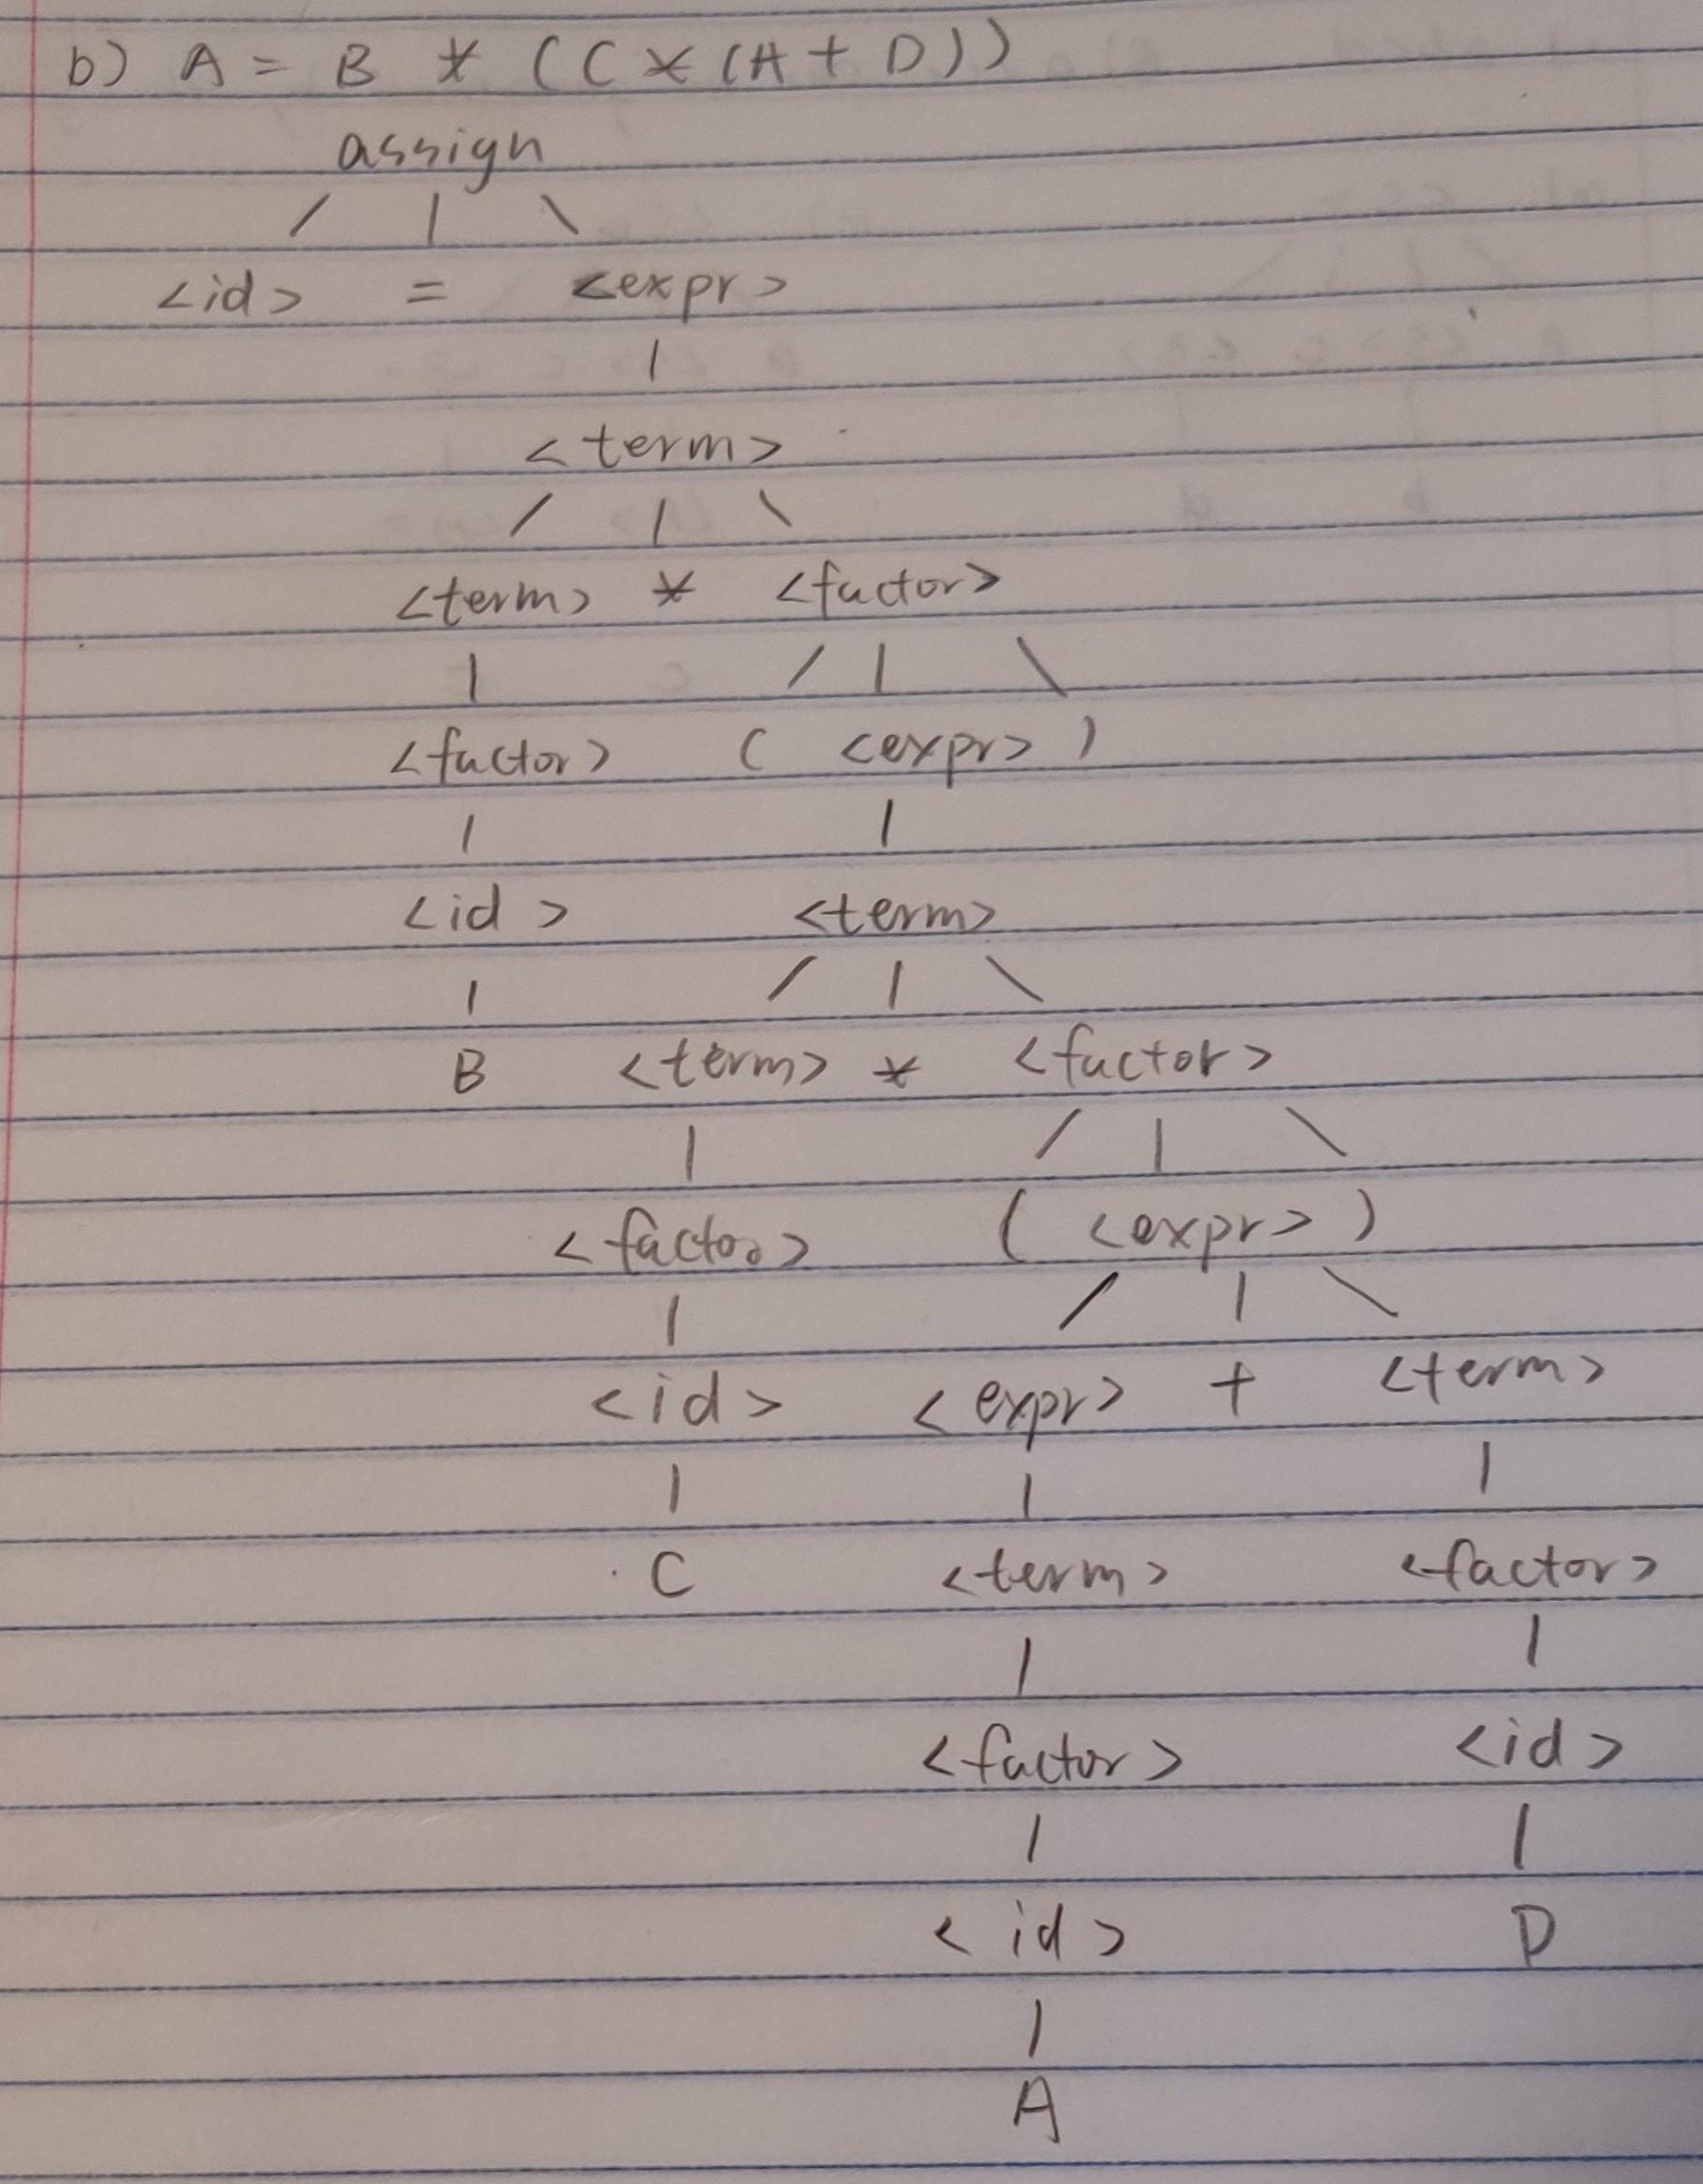 b) A = B * (C * (A + D))
assign
/ | \
<id> = <expr>
|
<term>
/ | \
<term> * <factor>
| / | \
<factor> ( <expr> )
| |
<id> <term>
| / | \
B <term> * <factor>
| / | \
<factor> ( <expr> )
| / | \
<id> <expr> + <term>
| | |
C <term> <factor>
| |
<factor> <id>
| |
<id> D
|
A